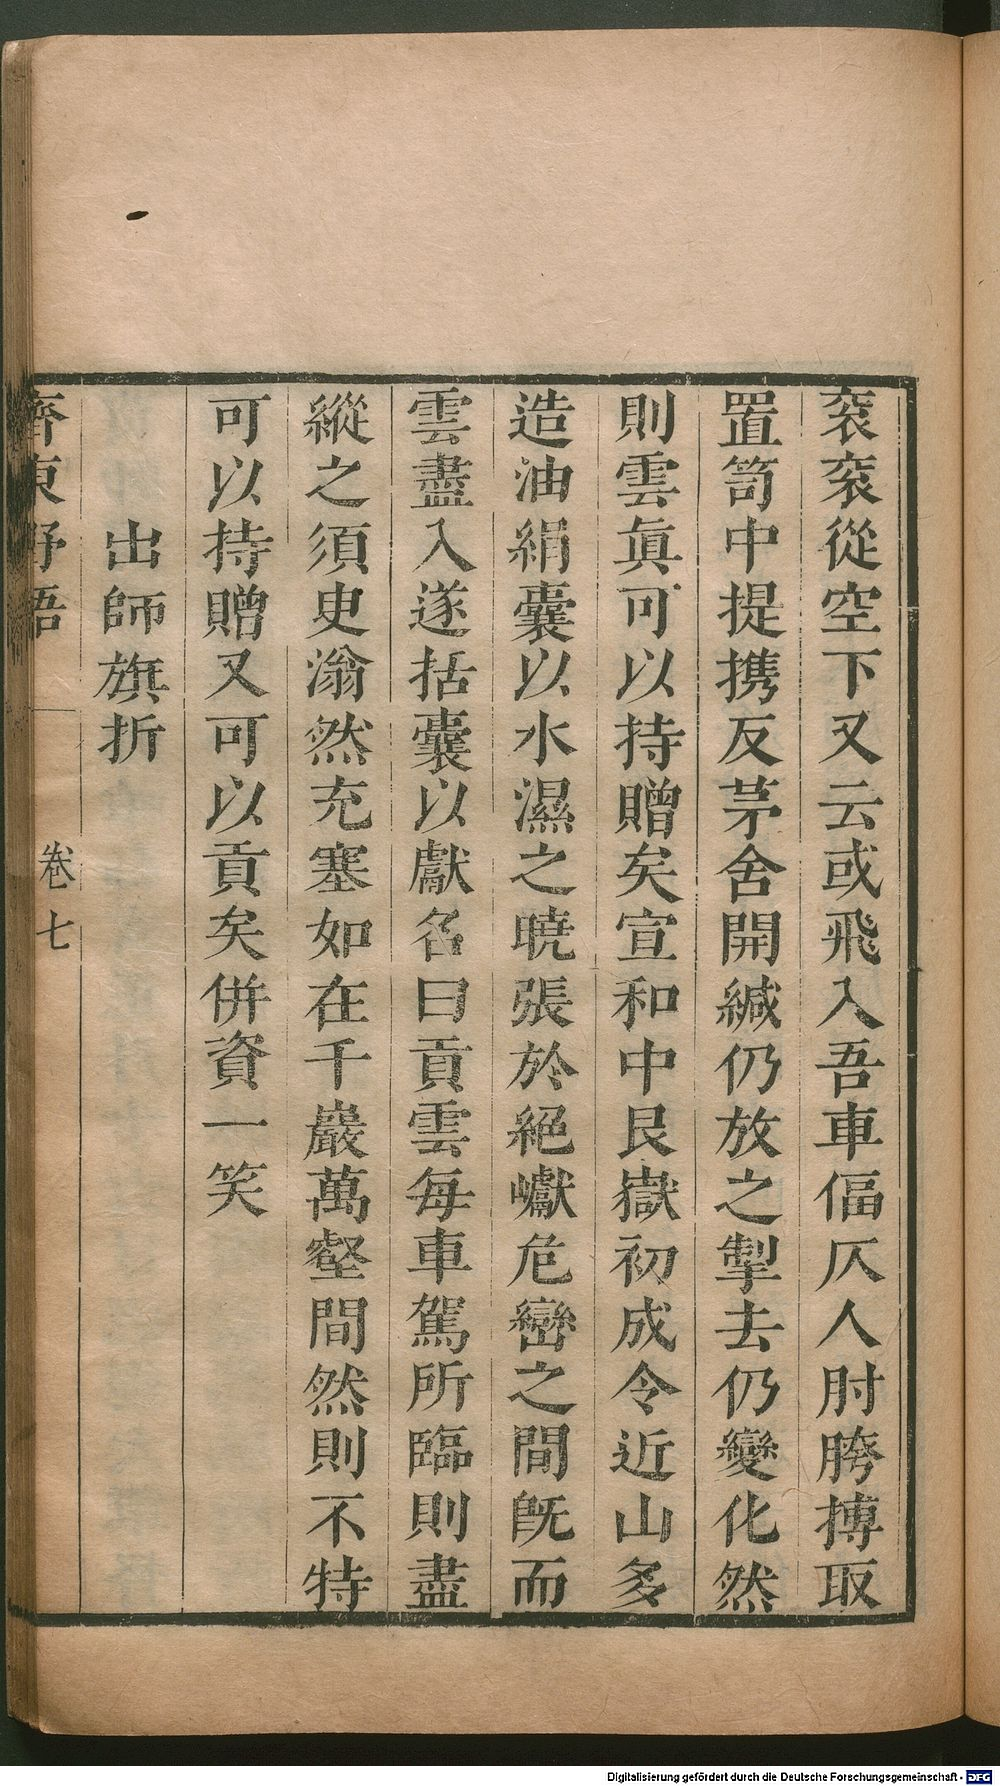 袞袞從空下又云或飛入吾車偪仄人肘胯搏取
置笥中提攜反茅舍開緘仍放之掣去仍變化然
則雲眞可以持贈矣宣和中艮嶽初成令近山多
造油絹囊以水濕之曉張於絕巘危巒之間旣而
雲盡入遂括囊以獻名曰貢雲每車駕所臨則盡
縱之須臾滃然充塞如在千巖萬壑間然則不特
可以持贈又可以貢矣併資一笑
出師旗折
齊東野語
卷七
Digitalisierung gefördert durch die Deutsche Forschungsgemeinschaft - DFG